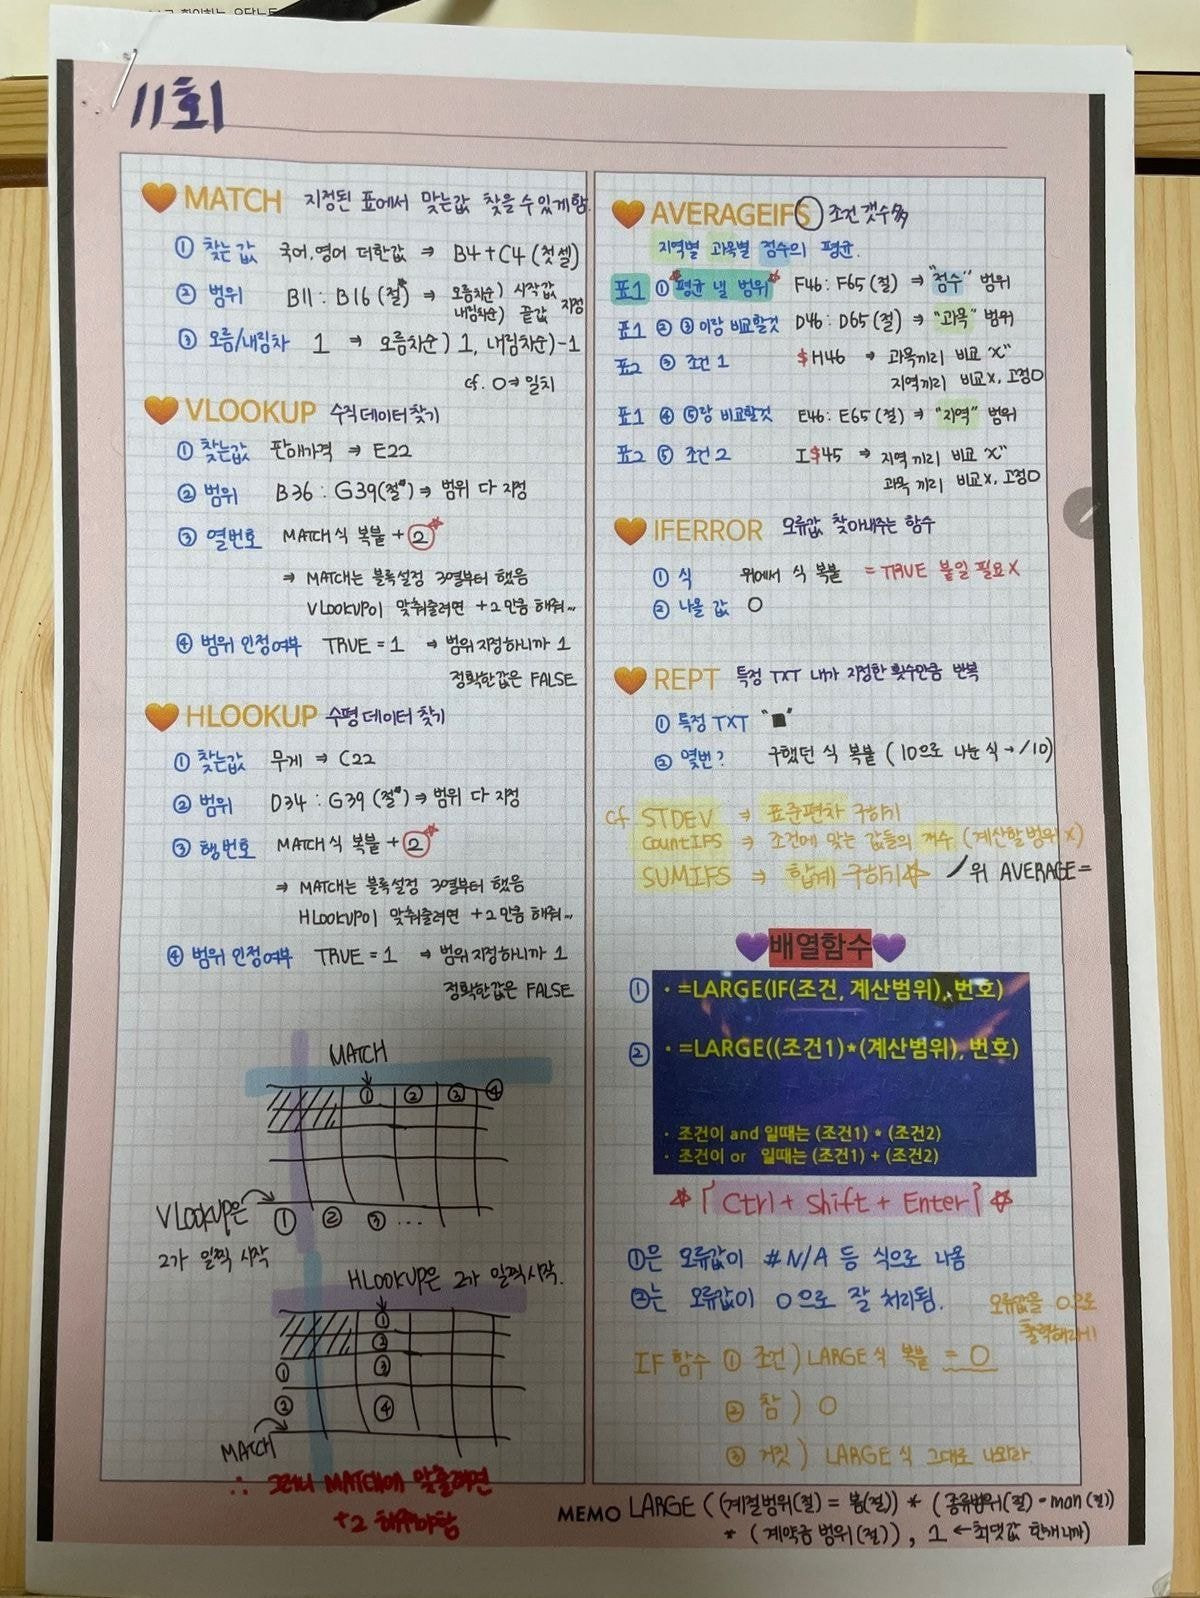 11회
MATCH 지정된 표에서 맞는값 찾을 수 있게함.
① 찾는 값 국어, 영어 더한값 ⇒ B4+C4 (첫셀)
② 범위 B11 : B16 (절) ⇒ 오름차순) 시작값
내림차순) 끝값 지정
③ 오름/내림차 1 ⇒ 오름차순) 1, 내림차순)-1
cf. 0⇒일치
VLOOKUP 수직 데이터 찾기
① 찾는값 판매가격 ⇒ E22
② 범위 B36 : G39(절) ⇒ 범위 다 지정
③ 열번호 MATCH 식 복붙 + 2
⇒ MATCH는 블록설정 3열부터 했음
VLOOKUP이 맞춰줄려면 +2 만큼 해줘~
④ 범위 인정여부 TRUE = 1 → 범위 지정하니까 1
정확한값은 FALSE
HLOOKUP 수평 데이터 찾기
① 찾는값 무게 ⇒ C22
② 범위 D34 : G39 (절) ⇒ 범위 다 지정
③ 행번호 MATCH 식 복붙 + 2
⇒ MATCH는 블록설정 3열부터 했음
HLOOKUP이 맞춰줄려면 +2 만큼 해줘~
④ 범위 인정여부 TRUE = 1 → 범위 지정하니까 1
정확한값은 FALSE
MATCH
① ② ③ ④
VLOOKUP은 ① ② ③ ...
2가 일찍 시작
HLOOKUP은 2가 일찍 시작.
①
②
① ③
② ④
MATCH
∴ 그러니 MATCH에 맞출려면
+2 해줘야함
AVERAGEIFS 조건 갯수多
지역별 과목별 점수의 평균.
표1 ① 평균 낼 범위 F46 : F65 (절) ⇒ "점수" 범위
표1 ② ③이랑 비교할것 D46 : D65 (절) ⇒ "과목" 범위
표2 ③ 조건 1 $H46 ⇒ 과목끼리 비교 X"
지역끼리 비교X, 고정O
표1 ④ ⑤랑 비교할것 E46 : E65 (절) ⇒ "지역" 범위
표2 ⑤ 조건 2 I$45 ⇒ 지역끼리 비교 X"
과목 끼리 비교X, 고정O
IFERROR 오류값 찾아내주는 함수
① 식 위에서 식 복붙 = TRUE 붙일 필요X
② 나올 값 0
REPT 특정 TXT 내가 지정한 횟수만큼 반복
① 특정 TXT "■"
② 몇번? 구했던 식 복붙 (10으로 나눈 식→/10)
cf STDEV ⇒ 표준편차 구하기
COUNTIFS ⇒ 조건에 맞는 값들의 개수 (계산할 범위X)
SUMIFS ⇒ 합계 구하기☆ / 위 AVERAGE=
배열함수
① · =LARGE(IF(조건, 계산범위), 번호)
② · =LARGE((조건1)*(계산범위), 번호)
· 조건이 and 일때는 (조건1) * (조건2)
· 조건이 or 일때는 (조건1) + (조건2)
☆「Ctrl + Shift + Enter」☆
①은 오류값이 #N/A 등 식으로 나옴
②는 오류값이 0으로 잘 처리됨.
오류값을 0으로
출력해라!
IF 함수 ① 조건) LARGE 식 복붙 = 0
② 참) 0
③ 거짓) LARGE 식 그대로 나와라
MEMO LARGE ((계절범위(절) = 봄(절)) * (종류범위(절) = man (절))
* (계약금 범위(절)), 1 ←최댓값 한개니까)